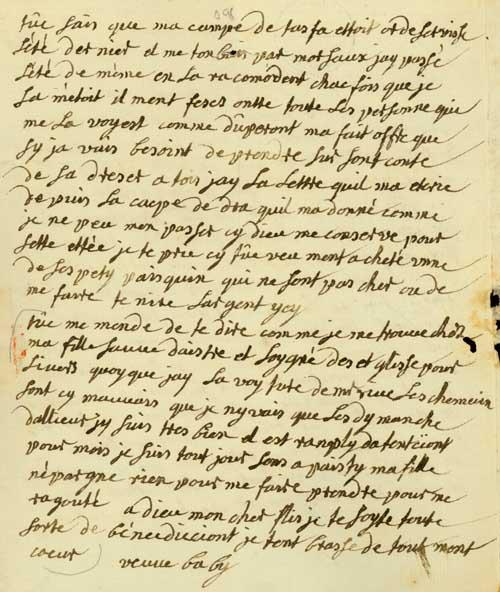 tüe sais que ma campe de tasfa ettoit or de servisse
l'été dernier el me tonbois par morsaux jay passé
l'été de mème en la racomodent chac fois que je
la métoit il ment fesés ontte toute les personne qui
me la voyest comme düperont ma fait offre que
sy ja vais besoint de prendre sur sont conte
de sa dreser a tois jay la lettre quil ma ecrie
depuis la cacpe de dra quil ma donné comme
je ne peu mon passer cy dieu me conserve pour
sette ettée je te prie cy tüe veu mont acheté unne
de ses pety pasquin qui ne sont pas cher ou de
me faire te nire largent ycy
tüe me monde de te dire comme je me trouve chez
ma fille
soygné des et glisse pour
livers quoy que jay la voyture de me
les chemein
sont cy mauvais que je ny vais que les dymanche
dallieur jy suis tres bien el est ranply datentiont
pour mois je suis tout jour sans a paisty ma fille
népargne rien pour me faire prendre pour me
ragouté a dieu mon cher flis je te soyte toute
sorte de bénédiction je tent brasse de tout mont
coeur veuve baby